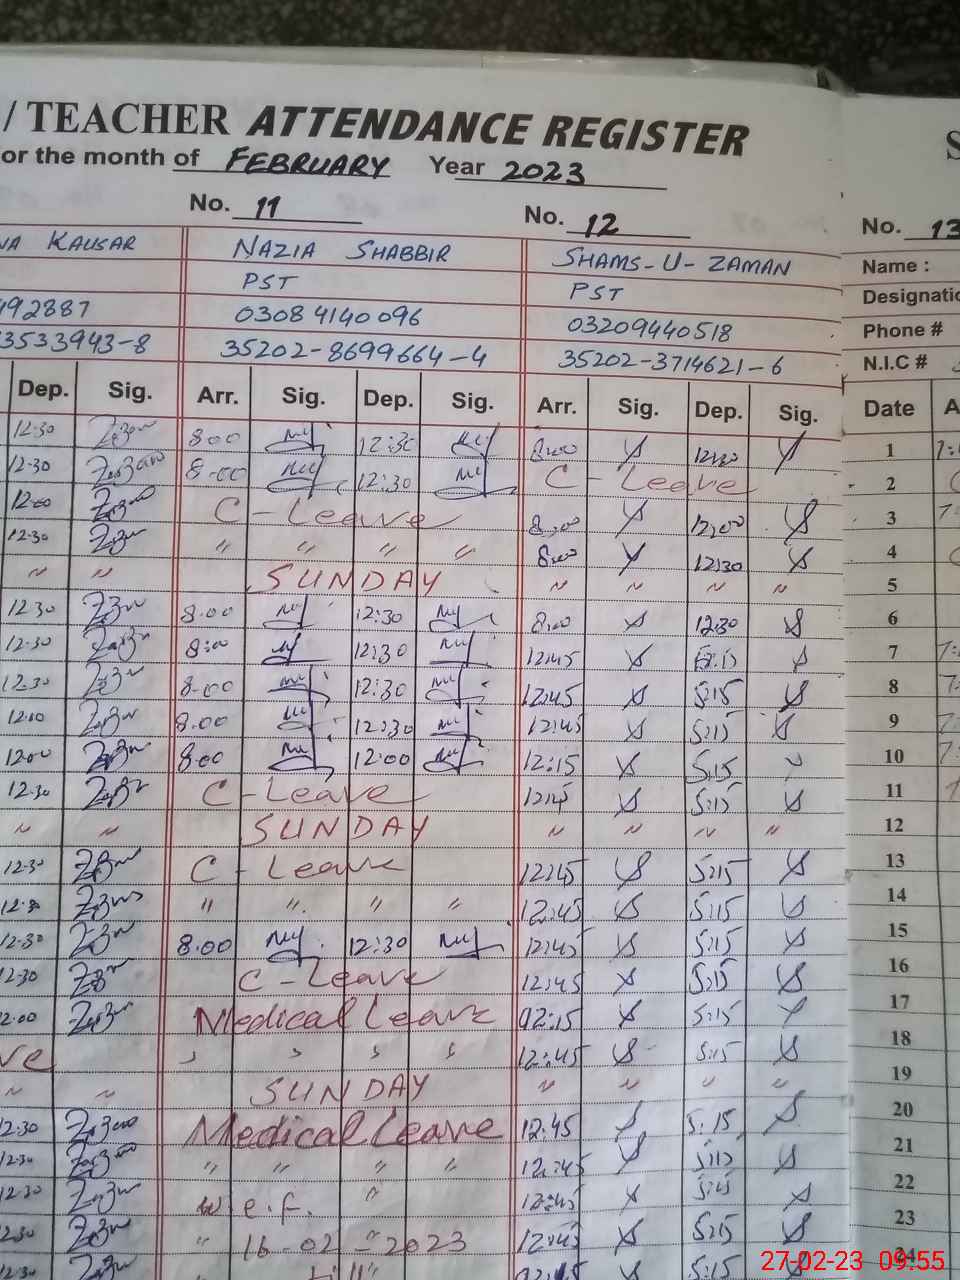 / TEACHER ATTENDANCE REGISTER
or the month of FEBRUARY Year 2023
No. 11 No. 12 No. 13
KAUSAR NAZIA SHABBIR SHAMS-U-ZAMAN Name :
PST PST Designatio
492887 0308 4140 096 03209440518 Phone #
3533943-8 35202-8699664-4 35202-3714621-6 N.I.C #
Dep. Sig. Arr. Sig. Dep. Sig. Arr. Sig. Dep. Sig. Date A
12:30 8:00 12:30 8:00 1
12:30 8-00 12:30 C-Leave 2
12:00 C-Leave 8:00 12:00 3
12:30 " " " " 8:00 12:30 4
" " SUNDAY " " " " 5
12:30 8:00 12:30 8:00 12:30 6
12:30 8:00 12:30 12:45 7
12:30 8-00 12:30 12:45 5:15 8
8:00 12:30 12:45 5:15 9
12:00 8:00 12:00 12:15 5:15 10
12:30 C-Leave 5:15 11
" " SUNDAY " " " " 12
12:30 C-Leave 12:45 5:15 13
" " " " 12:45 5:15 14
12:30 8:00 12:30 12:45 5:15 15
12:30 C-Leave 12:45 5:15 16
2:00 Medical Leave 02:15 5:15 17
ve " " " " 12:45 5:15 18
" " SUNDAY " " " " 19
12:30 Medical Leave 12:45 5:15 20
12:30 " " " " 12:45 5:15 21
12:30 w.e.f. " 12:45 22
12:30 " 16-02-2023 12:45 5:15 23
12:30 till 12:45 5:15 24
27-02-23 09:55